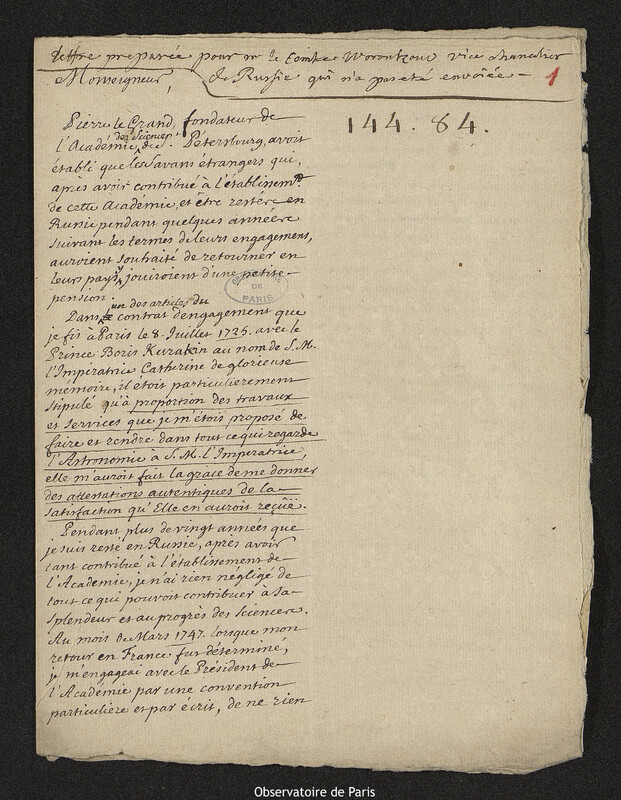 Lettre preparée pour mr le Comte Worontzow vice chancelier
de Russie qui n'a pas eté envoiée
1
Monseigneur,
144. 84.
Pierre le Grand, fondateur de
l'Académie des Sciences de Pétersbourg, avoit
établi que les Savans étrangers qui,
après avoir contribué à l'établissemt.
de cette Academie, et être restés en
Russie pendant quelques années
suivant les termes de leurs engagement,
auroient souhaité de retourner en
leurs pays, y jouiroient d'une petite
pension.
OBSERVATOIRE DE PARIS
Dans un des articles du contrat d'engagement que
je fis à Paris le 8. Juillet 1725. avec le
Prince Boris Kurakin au nom de S. M.
l'Impératrice Catherine de glorieuse
mémoire, il étoit particulierement
stipulé qu'à proportion des travaux
et services que je m'étois proposé de
faire et rendre dans tout ce qui regarde
l'Astronomie à S. M. l'Imperatrice,
elle m'auroit fait la grace de me donner
des attestations autentiques de la
satisfaction qu'Elle en auroit reçûë.
Pendant plus de vingt années que
je suis resté en Russie, après avoir
tant contribué à l'établissement de
l'Academie, je n'ai rien négligé de
tout ce qui pouvoit contribuer à sa
splendeur et au progrès des Sciences.
Au mois de Mars 1747. lorsque mon
retour en France fut déterminé,
je m'engageai avec le Président de
l'Académie par une convention
particuliere et par écrit, de ne rien
Observatoire de Paris